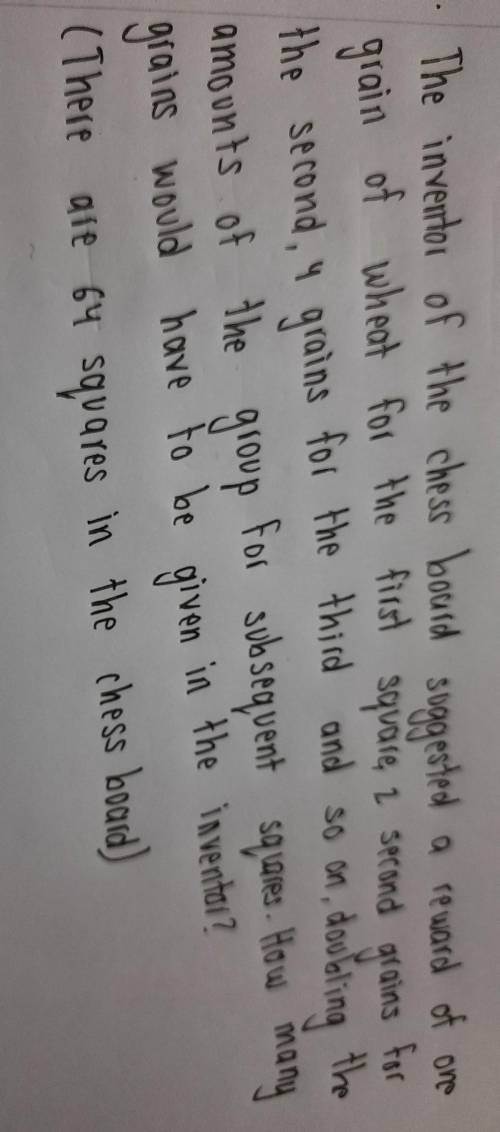 The inventor of the chess board suggested a reward of one
grain of wheat for the first square, 2 second grains for
the second, 4 grains for the third and so on, doubling the
amounts of the group for subsequent squares. How many
grains would have to be given in the inventor?
(There are 64 squares in the chess board)